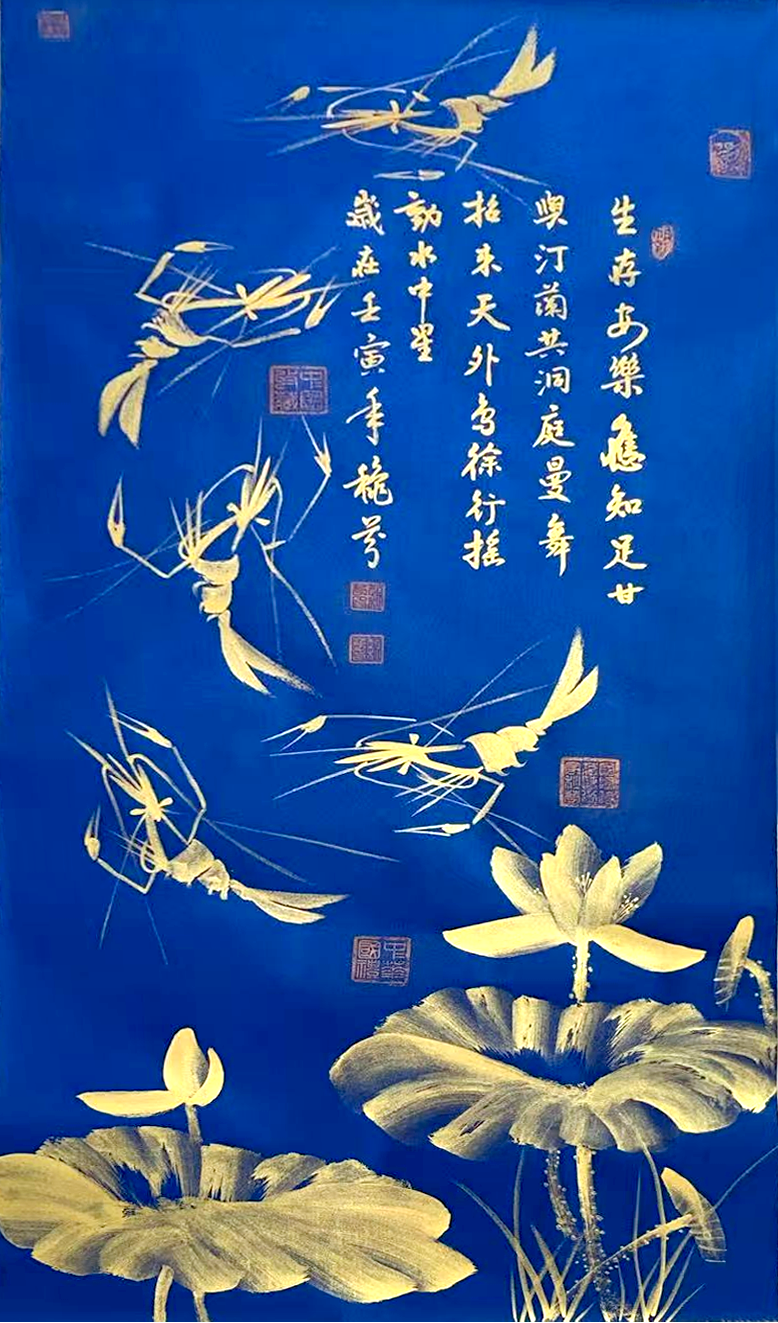 生存安樂應知足甘
與汀蘭共洞庭曼舞
招來天外鳥徐行搖
動水中星
歲在壬寅年穐芳